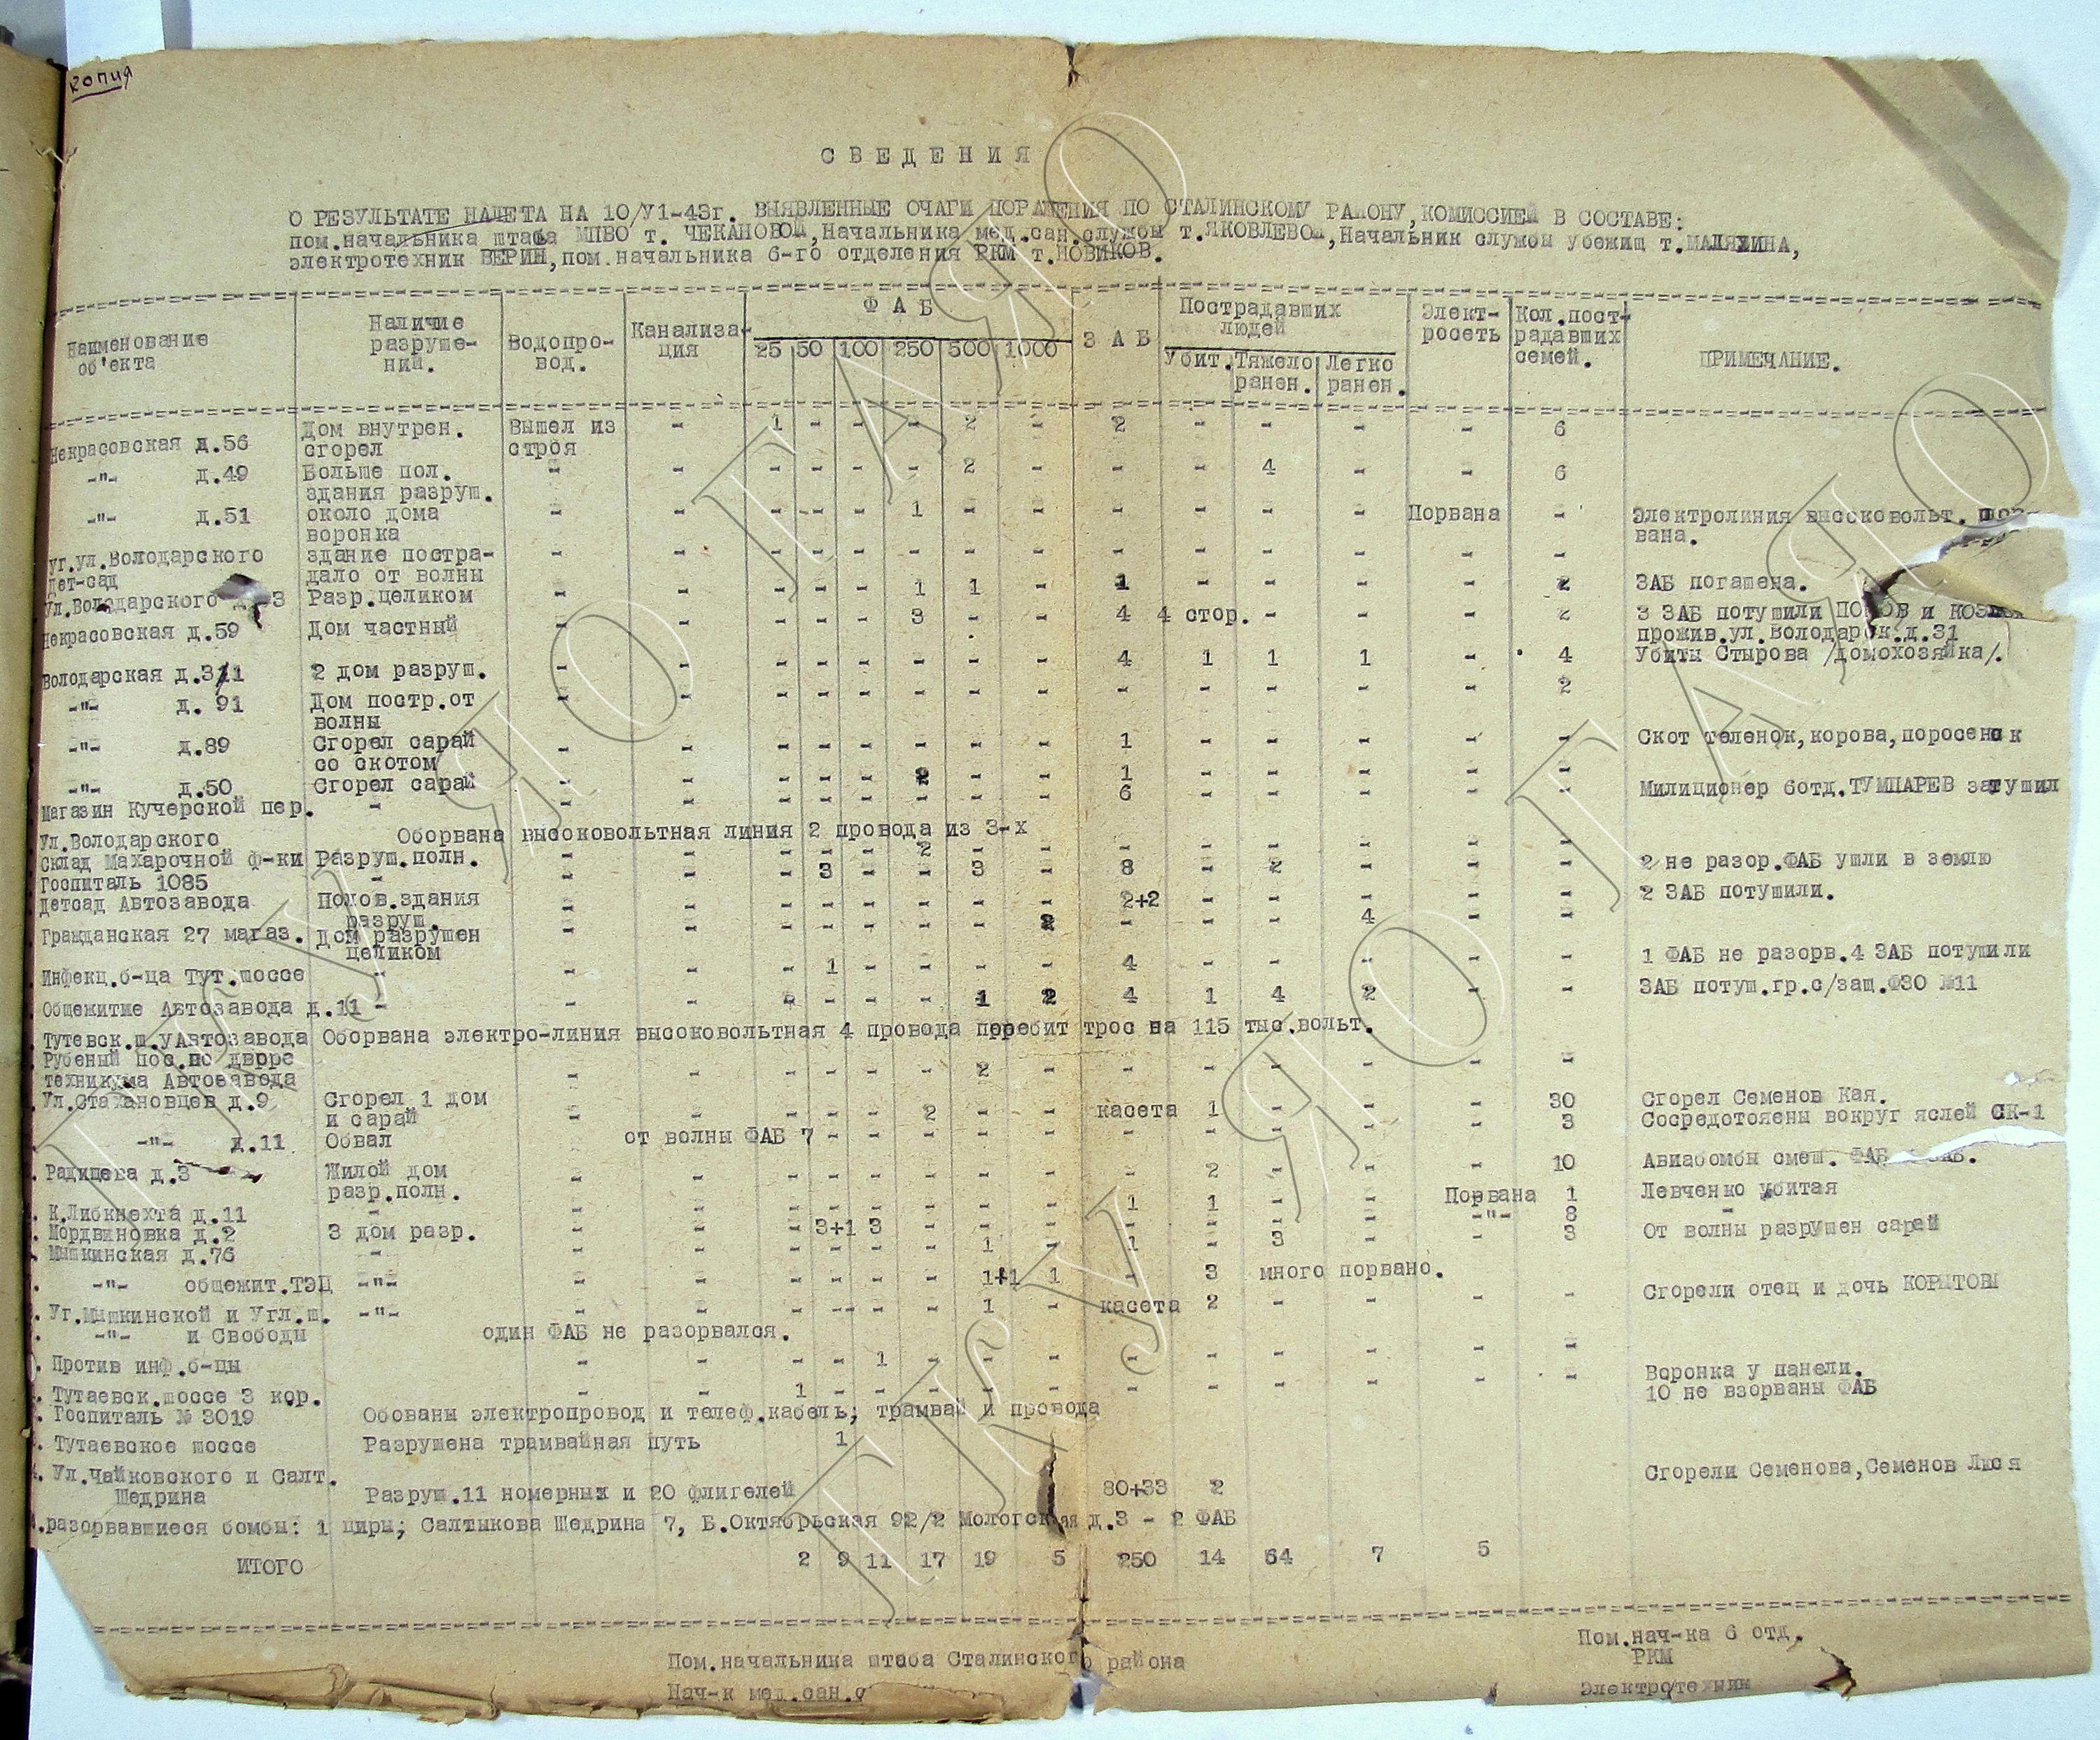 копия
СВЕДЕНИЯ
О РЕЗУЛЬТАТЕ НАЛЕТА НА 10/У1-43г. ВЫЯВЛЕННЫЕ ОЧАГИ ПОРАЖЕНИЯ ПО СТАЛИНСКОМУ РАЙОНУ, КОМИССИЕЙ В СОСТАВЕ:
пом.начальника штаба МПВО т. ЧЕКАНОВОЙ, Начальника мед.сан.службы т.ЯКОВЛЕВОЙ, Начальник службы убежищ т.МАЛЯХИНА,
электротехник ВЕРИН, пом.начальника 6-го отделения РКМ т.НОВИКОВ.
Наименование об'екта | Наличие разруше-ний. | Водопро-вод. | Канализа-ция | ФАБ 25 50 100 250 500 1000 | ЗАБ | Пострадавших людей Убит. Тяжело ранен. Легко ранен. | Элект-росеть | Кол.пост-радавших семей. | ПРИМЕЧАНИЕ.
Некрасовская д.56 Дом внутрен. сгорел Вышел из строя - 1 - - - 2 - 2 - - - - 6
-"- д.49 Больше пол. здания разруш. - - - - - - 2 - - - 4 - - 6
-"- д.51 около дома воронка - - - - - 1 - - - - - - Порвана - Электролиния высоковольт. вана.
уг.ул.Володарского дет-сад здание постра-дало от волны - - - - - - - - - - - - - -
Ул.Володарского Разр.целиком - - - - - 1 1 - 1 - - - - 2 ЗАБ погашена.
Некрасовская д.59 Дом частный - - - - - 3 - - 4 4 стор. - - - 2 3 ЗАБ потушили прожив.ул.Володарск.д.31
Володарская д.3/11 2 дом разруш. - - - - - - - - 4 1 1 1 - 4 Убиты Стырова /домохозяйка/.
-"- д. 91 Дом постр.от волны - - - - - - - - - - - - - 2
-"- д.89 Сгорел сарай со скотом - - - - - - - - 1 - - - - - Скот теленок, корова, поросенок
-"- д.50 Сгорел сарай - - - - - 2 - - 1 - - - - -
Магазин Кучерской пер. - - - - - - - - - 6 - - - - - Милиционер 6отд.ТУМПАРЕВ затушил
Ул.Володарского Оборвана высоковольтная линия 2 провода из 3-х
Склад Махарочной ф-ки Разруш.полн. - - - - - 2 - - - - - - - - 2 не разор.ФАБ ушли в землю
Госпиталь 1085 - - - - 3 - - 3 - 8 - 2 - - -
Детсад Автозавода Полов.здания разруш. - - - - - - - - 2+2 - - - - - 2 ЗАБ потушили.
Гражданская 27 магаз. Дом разрушен целиком - - - - - - - 2 - - - 4 - -
Инфекц.б-ца Тут.шоссе - - - - 1 - - - - 4 - - - - - 1 ФАБ не разорв.4 ЗАБ потушили
Общежитие Автозавода д.11 - - - - - - - 1 2 4 1 4 2 - - ЗАБ потуш.гр.с/защ.ФЗО №11
Тутевск.ш.уАвтозавода Оборвана электро-линия высоковольтная 4 провода перебит трос на 115 тыс.вольт.
Рубеный пос.во дворе
техникума Автозавода - - - - - - 2 - - - - - - -
Ул.Стахановцев д.9 Сгорел 1 дом и сарай - - - - - 2 - - касета 1 - - - 30 Сгорел Семенов Кая.
-"- д.11 Обвал от волны ФАБ 7 - - - - - - - - - - 3 Сосредотояены вокруг яслей СК-1
Радищева д.3 Жилой дом разр.полн. - - - - - - - - - 2 - - - 10 Авиабомбы смеш. ФАБ
К.Либкнехта д.11 - - - - - - - - - 1 1 - - Порвана 1 Левченко убитая
Мордвиновка д.2 3 дом разр. - - - 3+1 3 - - - - - - - -"- 8 -
Мышкинская д.76 - - - - - - - 1 - 1 - 3 - - 3 От волны разрушен сарай
-"- общежит.ТЭЦ -"- - - - - - - 1+1 1 - 3 много порвано.
Уг.Мышкинской и Угл.ш. -"- - - - -- - - 1 - касета 2 - - - - Сгорели отец и дочь КОРЫТОВЫ
-"- и Свободы один ФАБ не разорвался.
Против инф.б-цы - - - - 1 - - - - - - - - -
Тутаевск.шоссе 3 кор. - - 1 - - - - - - - - - - - Воронка у панели.
Госпиталь № 3019 Обованы электропровод и телеф.кабель; трамвай и провода 10 не взорваны ФАБ
Тутаевское шоссе Разрушена трамвайная путь 1
Ул.Чайковского и Салт. Щедрина Разруш.11 номерных и 20 флигелей 80+33 2 Сгорели Семенова, Семенов Люся
.разорвавшиеся бомбы: 1 цирк; Салтыкова Щедрина 7, Б.Октябрьская 92/2 Мологская д.3 - 2 ФАБ
ИТОГО 2 9 11 17 19 5 250 14 64 7 5
Пом.начальника штаба Сталинского района
Пом.нач-ка 6 отд. РКМ
Нач-к мед.сан.с
Электротехник
ГКУ ЯО ГАЯО
ГКУ ЯО ГАЯО